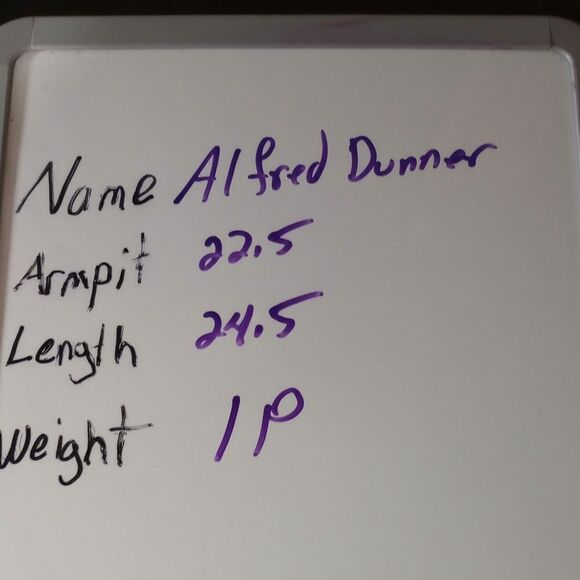 Name Alfred Dunner
Armpit 22.5
Length 24.5
Weight 1P